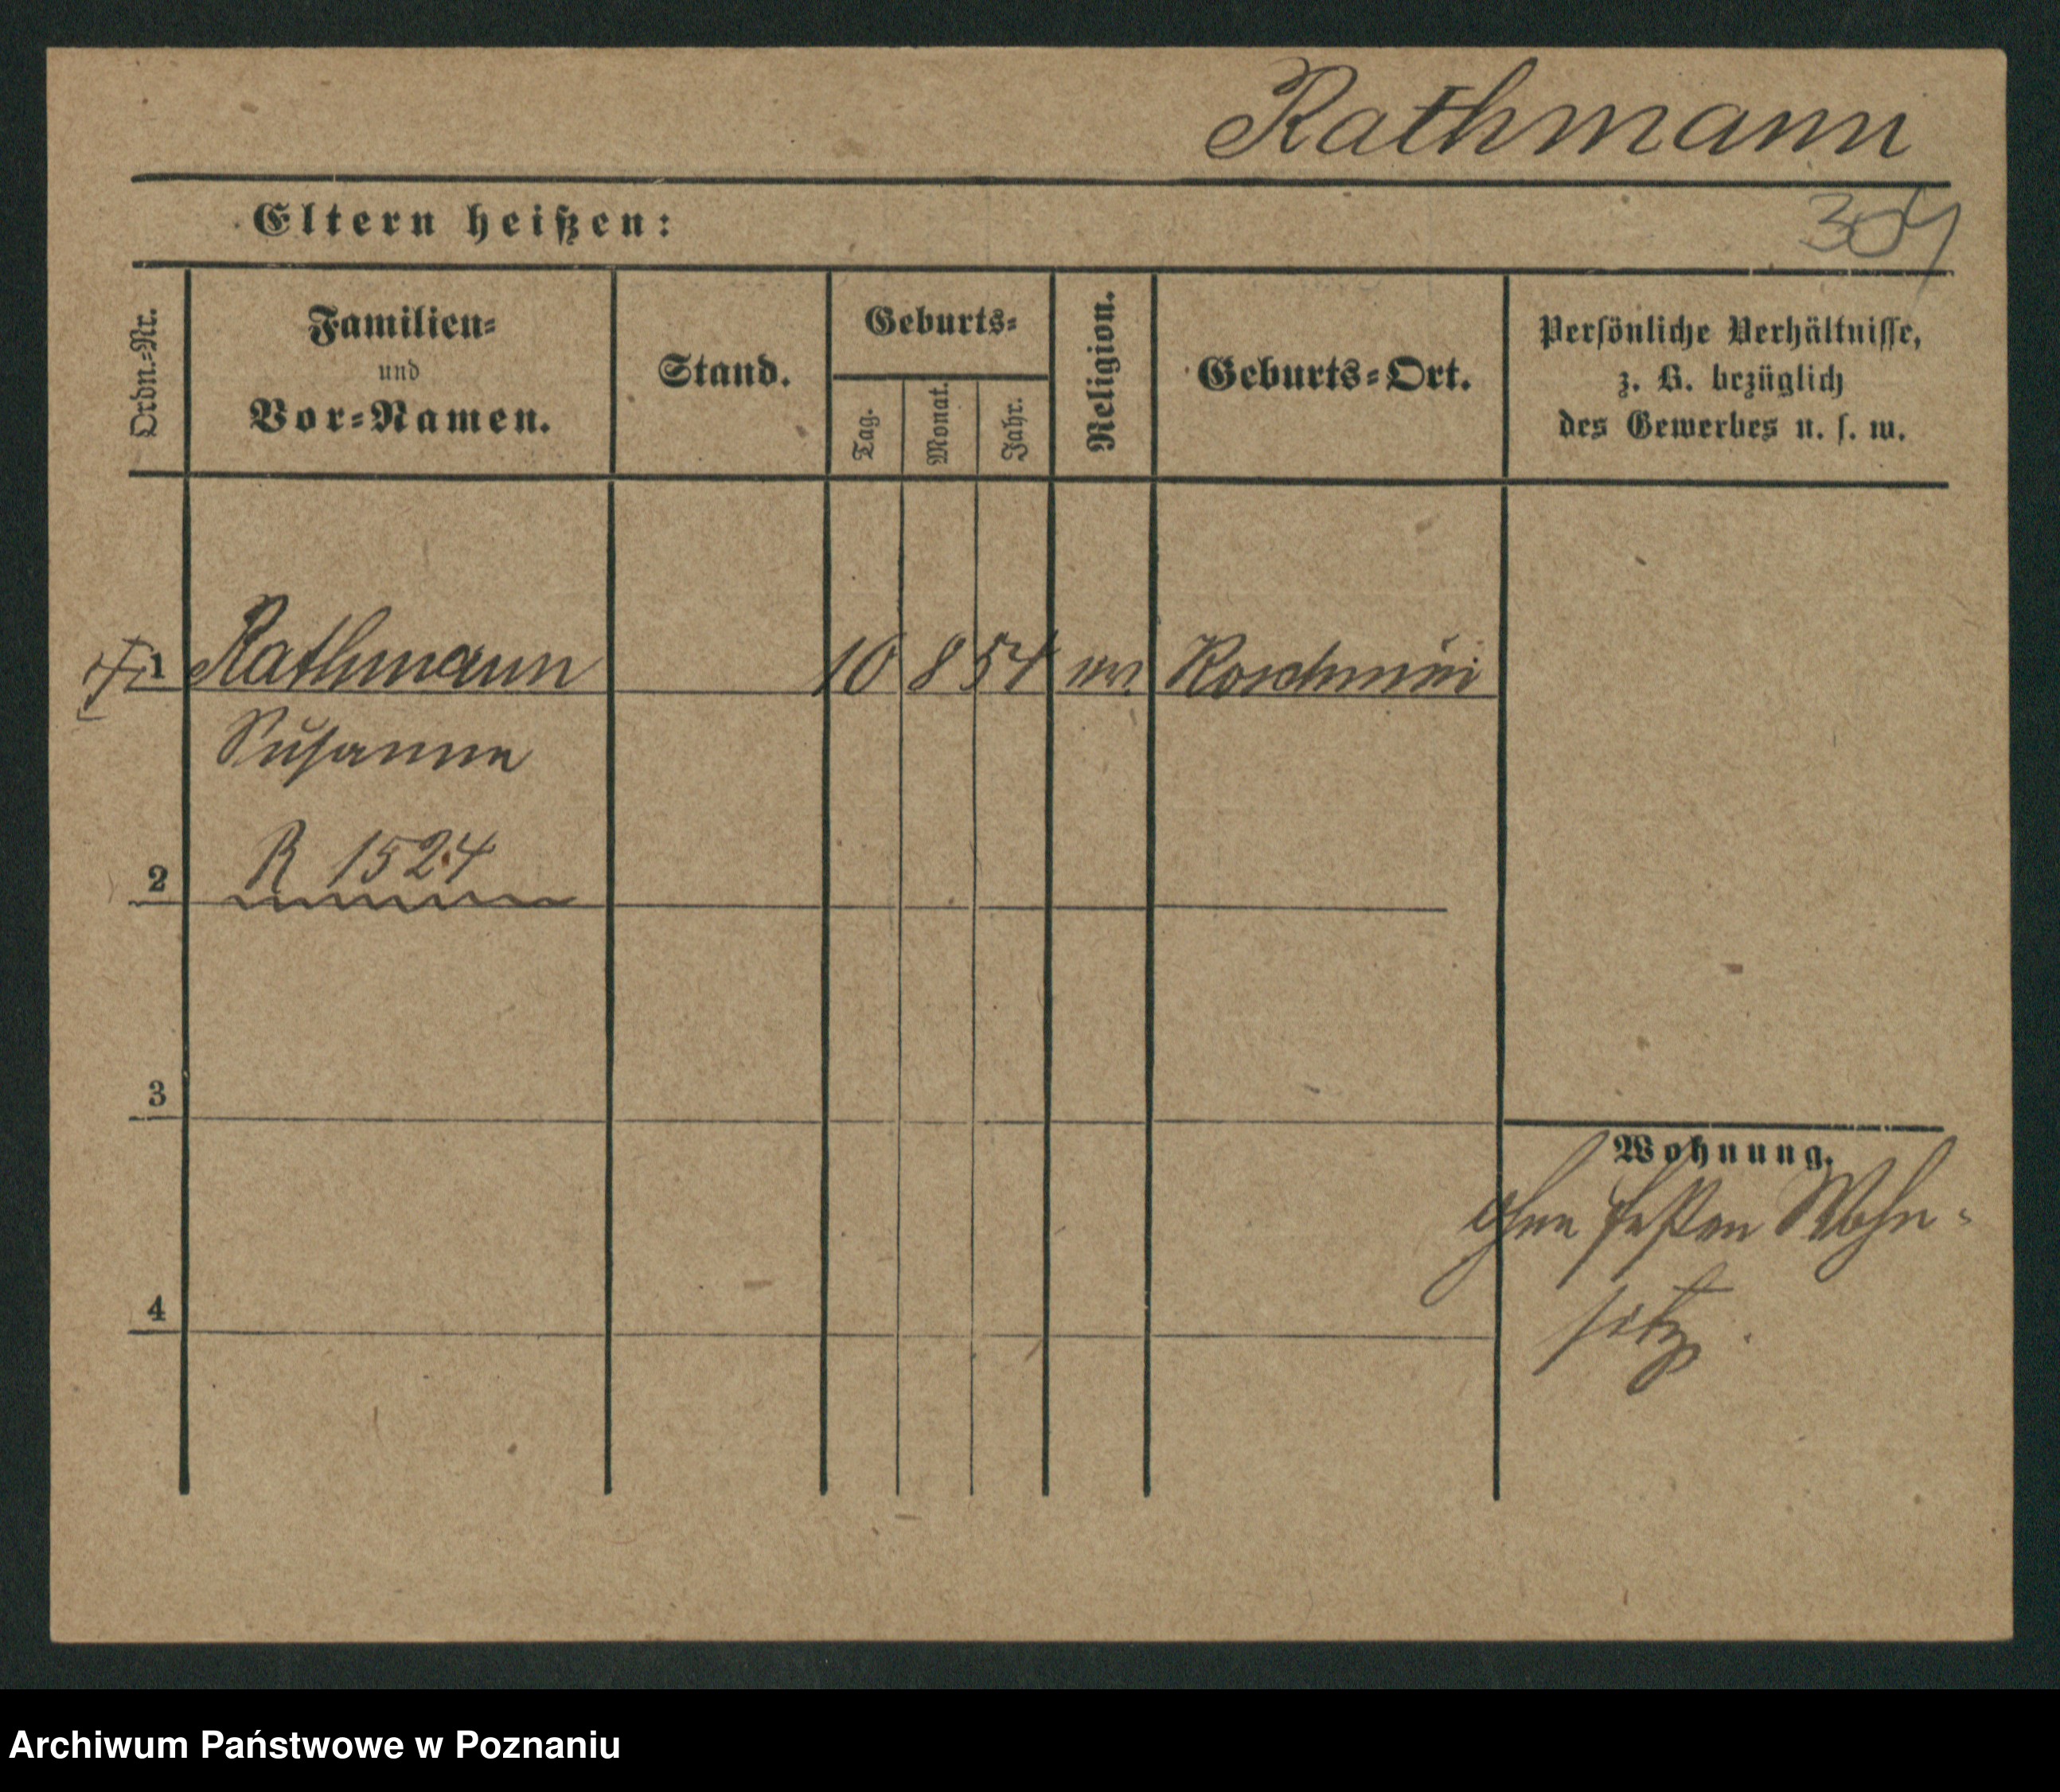 Rathmann
Eltern heißen:
304
Ordn.-Nr.
Familien-
und
Vor-Namen.
Stand.
Geburts-
Tag.
Monat.
Jahr.
Religion.
Geburts-Ort.
Persönliche Verhältnisse,
z. B. bezüglich
des Gewerbes u. s. w.
1 Rathmann 10 8 54
Susanne
R 1524
2
3
Wohnung.
ohne festen Wohn-
sitz.
4
Archiwum Państwowe w Poznaniu